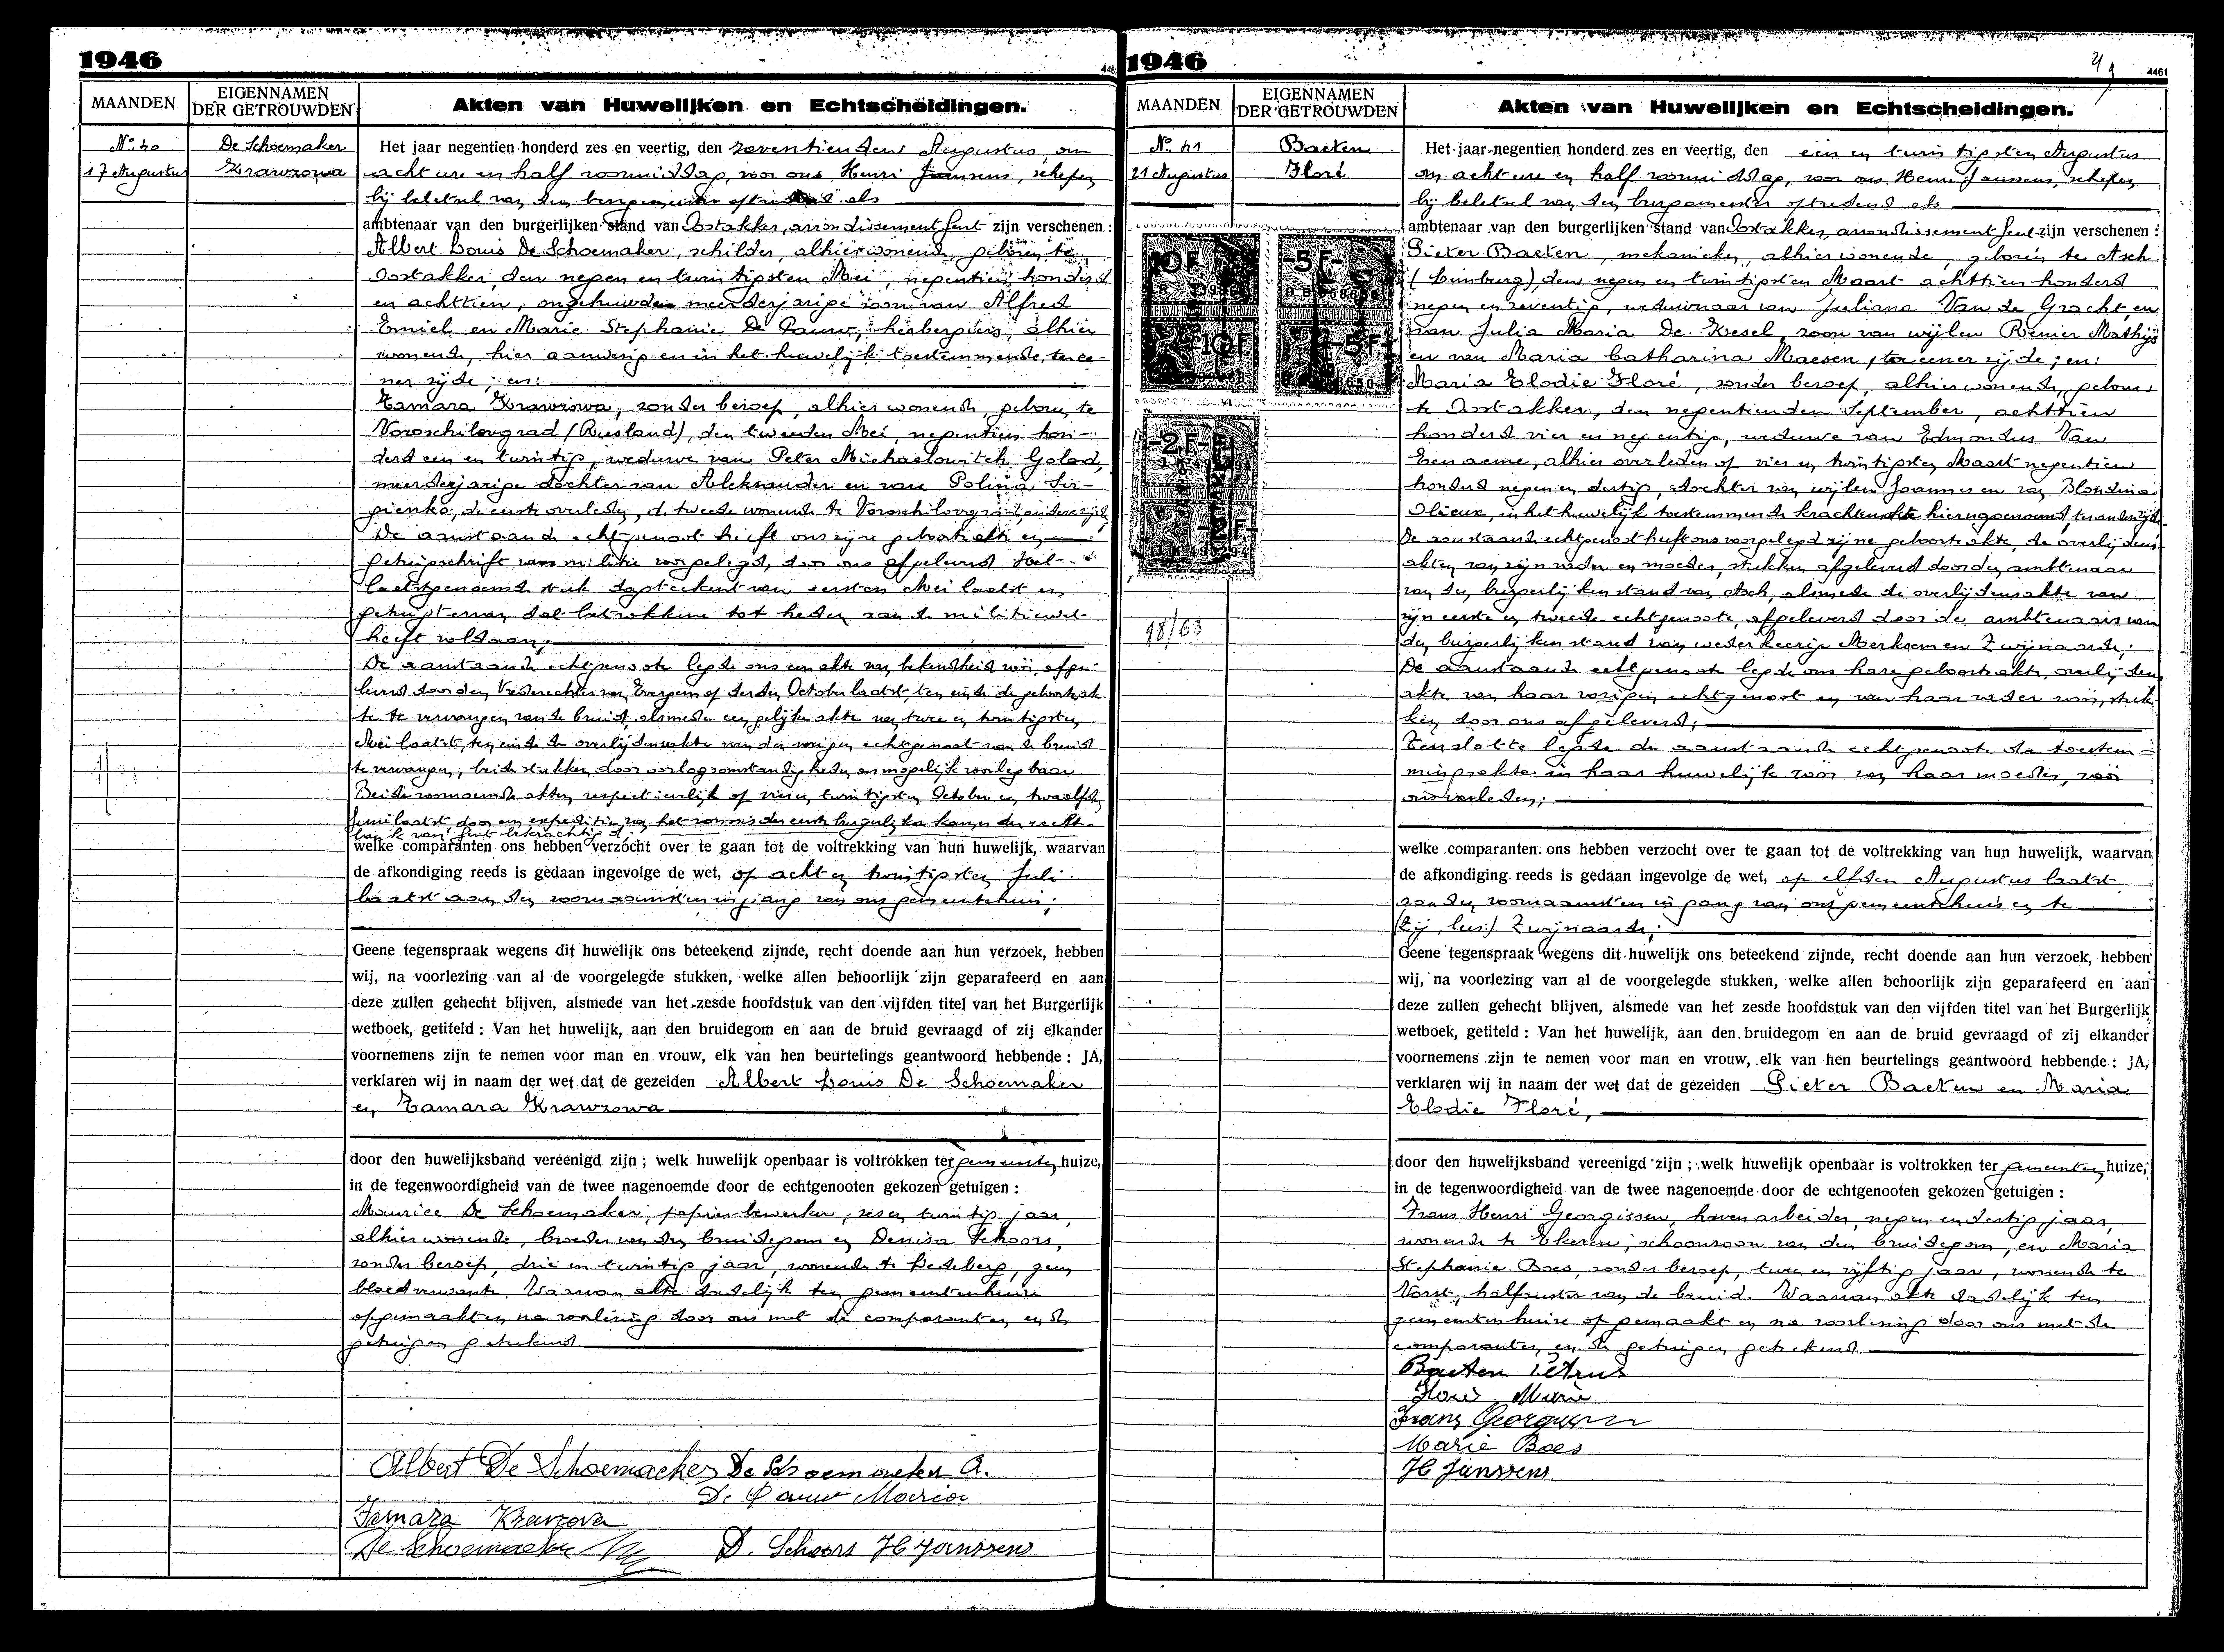 1946
MAANDEN
EIGENNAMEN
DER GETROUWDEN
Akten van Huwelijken en Echtscheidingen.
No 40
De Schoemaker
17 Augustus
Krawzowa
Het jaar negentien honderd zes en veertig, den zeventienden Augustus, om
acht ure en half voormiddag, voor ons Henri Janssens, schepen
bij beletsel van den burgemeester optredend als
ambtenaar van den burgerlijken stand van Oostakker, arrondissement Gent zijn verschenen :
Albert Louis De Schoemaker, schilder, alhier wonende, geboren te
Oostakker, den negen en twintigsten Mei, negentien honderd
en achttien, ongehuwden meerderjarige zoon van Alfred
Emiel en Marie Stephanie De Pauw, herbergiers, alhier
wonende, hier aanwezig en in het huwelijk toestemmende, ter ee-
ner zijde ; en :
Tamara Krawzowa, zonder beroep, alhier wonende, geboren te
Voroschilovgrad (Rusland), den tweeden Mei, negentien hon-
derd een en twintig, weduwe van Peter Michaelowitch Golod,
meerderjarige dochter van Aleksander en van Polina Sir-
pienko, de eerste overleden, de tweede wonende te Voroschilovgrad, anderzijds
De aanstaande echtgenoot heeft ons zijne geboorteakte en
getuigschrift van militie voorgelegd, door ons afgeleverd. Het
laatstgenoemde stuk dagteekent van eersten Mei laatst en
getuigt ervan dat betrokkene tot heden aan de militiewet
heeft voldaan ;
De aanstaande echtgenoote legde ons een akte van bekendheid vóór, afge-
leverd door den Vrederechter van Evergem op derden October laatst, ten einde de geboorteak-
te te vervangen van de bruid, alsmede een gelijke akte van twee en twintigsten
Mei laatst, ten einde de overlijdensakte van den vorigen echtgenoot van de bruid
te vervangen, beide stukken door oorlogsomstandigheden onmogelijk voorlegbaar.
Beide voornoemde akten respectievelijk op vier en twintigsten October en twaalfden
Juni laatst door een expeditie van het vonnis der eerste burgerlijke kamer der recht-
bank van Gent bekrachtigd ;
welke comparanten ons hebben verzocht over te gaan tot de voltrekking van hun huwelijk, waarvan
de afkondiging reeds is gedaan ingevolge de wet, op acht en twintigsten Juli
laatst aan den voornaamsten ingang van ons gemeentehuis ;
Geene tegenspraak wegens dit huwelijk ons beteekend zijnde, recht doende aan hun verzoek, hebben
wij, na voorlezing van al de voorgelegde stukken, welke allen behoorlijk zijn geparafeerd en aan
deze zullen gehecht blijven, alsmede van het zesde hoofdstuk van den vijfden titel van het Burgerlijk
wetboek, getiteld : Van het huwelijk, aan den bruidegom en aan de bruid gevraagd of zij elkander
voornemens zijn te nemen voor man en vrouw, elk van hen beurtelings geantwoord hebbende : JA,
verklaren wij in naam der wet dat de gezeiden Albert Louis De Schoemaker
en Tamara Krawzowa
door den huwelijksband vereenigd zijn ; welk huwelijk openbaar is voltrokken ter gemeenten huize,
in de tegenwoordigheid van de twee nagenoemde door de echtgenooten gekozen getuigen :
Maurice De Schoemaker, papierbewerker, zes en twintig jaar,
alhier wonende, broeder van den bruidegom en Denisa Schoors,
zonder beroep, drie en twintig jaar, wonende te Ledeberg, geen
bloedverwante. Waarvan akte dadelijk ten gemeentenhuize
opgemaakt en na voorlezing door ons met de comparanten en de
getuigen geteekend.
Albert De Schoemaeker De Schoemaeker A.
De Pauw Maria
Tamara Kravzova
De Schoemaeker M
D. Schoors H Janssens
1946
4461
MAANDEN
EIGENNAMEN
DER GETROUWDEN
Akten van Huwelijken en Echtscheidingen.
No 41
Baeten
21 Augustus
Floré
Het jaar negentien honderd zes en veertig, den een en twintigsten Augustus
om acht ure en half voormiddag, voor ons Henri Janssens, schepen
bij beletsel van den burgemeester optredend als
ambtenaar van den burgerlijken stand van Oostakker, arrondissement Gent zijn verschenen :
Pieter Baeten, mekanieker, alhier wonende, geboren te Asch
(Limburg), den negen en twintigsten Maart achttien honderd
negen en zeventig, weduwnaar van Juliana Van de Gracht en
van Julia Maria De Kesel, zoon van wijlen Renier Mathijs
en van Maria Catharina Maesen, ter eener zijde ; en :
Maria Elodie Floré, zonder beroep, alhier wonende, geboren
te Oostakker, den negentienden September, achttien
honderd vier en negentig, weduwe van Edmondus Van
Eenaeme, alhier overleden op vier en twintigsten Maart negentien
honderd negen en dertig, dochter van wijlen Joannes en van Blondina
Olieux, in het huwelijk toestemmende krachtens akte hiernagenoemd, ter anderzijde.
De aanstaande echtgenoot heeft ons voorgelegd zijne geboorteakte, de overlijdens-
akten van zijn vader en moeder, stukken afgeleverd door den ambtenaar
van den burgerlijken stand van Asch, alsmede de overlijdensakte van
zijn eerste en tweede echtgenoote, afgeleverd door de ambtenaars van
den burgerlijken stand van wederkeerig Merksem en Zwijnaarde ;
De aanstaande echtgenoote legde ons hare geboorteakte, overlijdens
akte van haar vorigen echtgenoot en van haar vader vóór, stuk-
ken door ons afgeleverd ;
Tenslotte legde de aanstaande echtgenoote de toestem-
mingsakte in haar huwelijk vóór van haar moeder, vóór
ons verleden ;
10F
-5F-
10F
-5F-
-2F-
98/63
welke comparanten ons hebben verzocht over te gaan tot de voltrekking van hun huwelijk, waarvan
de afkondiging reeds is gedaan ingevolge de wet, op elfden Augustus laatst
aan den voornaamsten ingang van ons gemeentehuis en te
(Zij, lees:) Zwijnaarde ;
Geene tegenspraak wegens dit huwelijk ons beteekend zijnde, recht doende aan hun verzoek, hebben
wij, na voorlezing van al de voorgelegde stukken, welke allen behoorlijk zijn geparafeerd en aan
deze zullen gehecht blijven, alsmede van het zesde hoofdstuk van den vijfden titel van het Burgerlijk
wetboek, getiteld : Van het huwelijk, aan den bruidegom en aan de bruid gevraagd of zij elkander
voornemens zijn te nemen voor man en vrouw, elk van hen beurtelings geantwoord hebbende : JA,
verklaren wij in naam der wet dat de gezeiden Pieter Baeten en Maria
Elodie Floré,
door den huwelijksband vereenigd zijn ; welk huwelijk openbaar is voltrokken ter gemeenten huize,
in de tegenwoordigheid van de twee nagenoemde door de echtgenooten gekozen getuigen :
Frans Henri Georgissen, havenarbeider, negen en dertig jaar,
wonende te Ekeren, schoonzoon van den bruidegom, en Maria
Stephanie Boes, zonder beroep, twee en vijftig jaar, wonende te
Vorst, halfzuster van de bruid. Waarvan akte dadelijk ten
gemeentenhuize opgemaakt en na voorlezing door ons met de
comparanten en de getuigen geteekend.
Baeten Petrus
Floré Marie
Frans Georgissen
Marie Boes
H Janssens